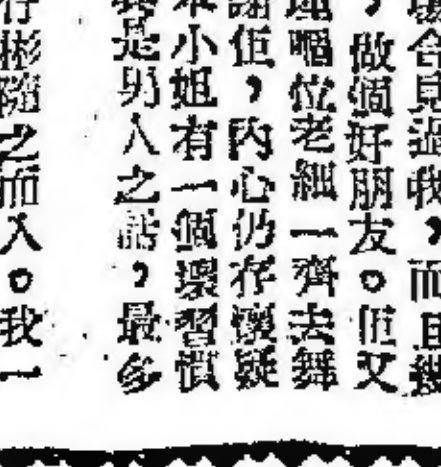 場合見過我，而且幾
，做個好朋友。佢又
嗰位老細一齊去舞
謝佢，內心仍存懷疑
小姐有一個壞習慣
是男人之話，最多
彬隨之而入。我一